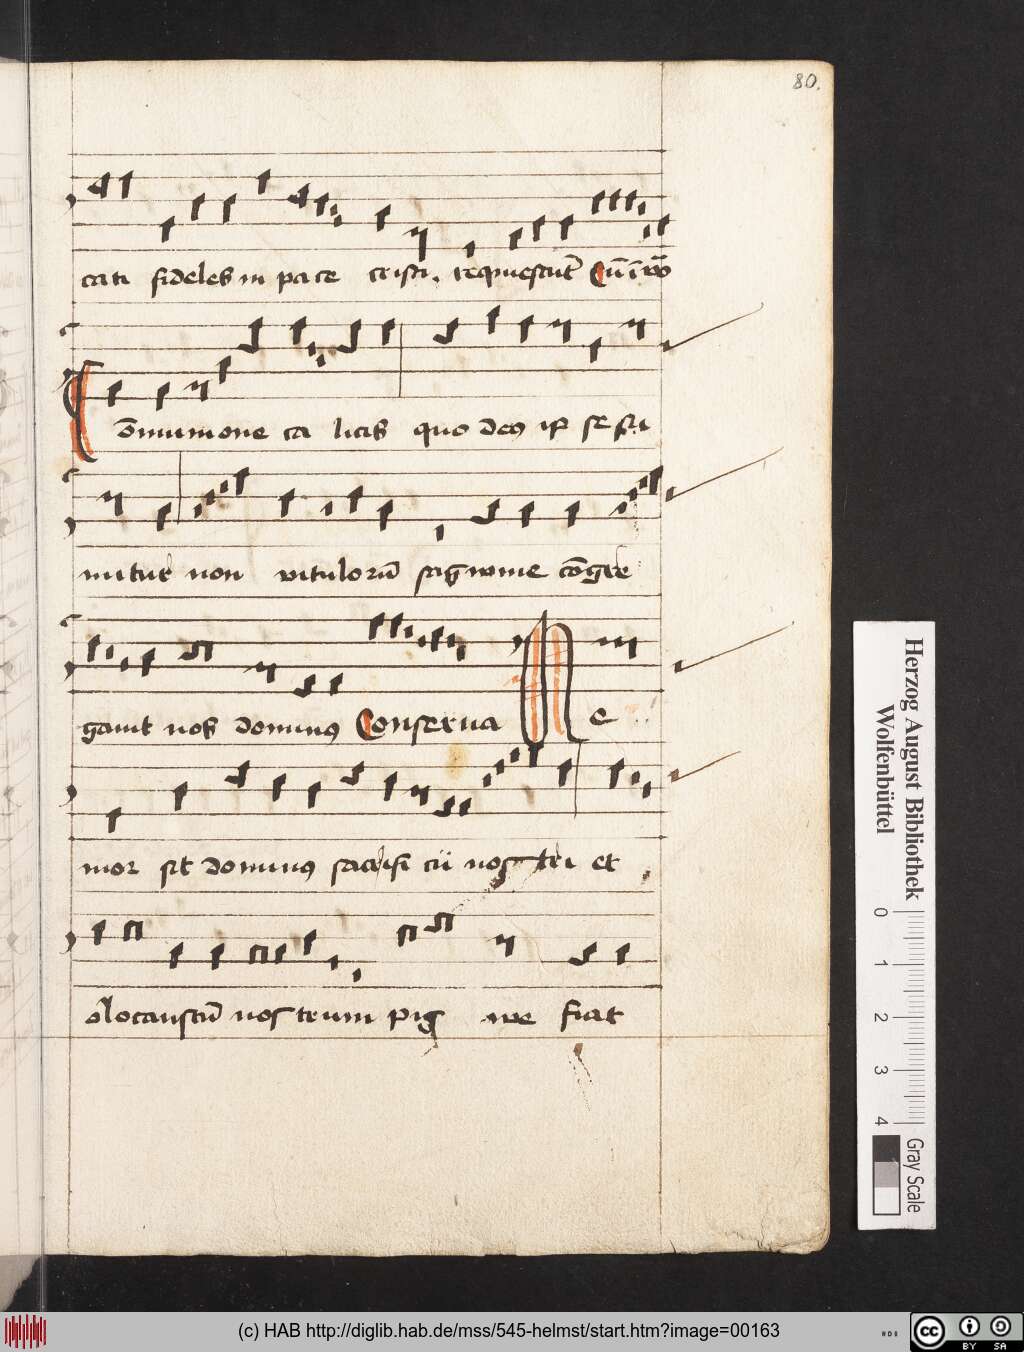 80.
cati fideles in pace cristi. requiescūt Cū īvo
Cōmunione calicis quo deus ip se su
mitur non vitulorū sagwine cōgre
gauit nos dominus Conserua M e
mor sit dominus sacrifi cii nostri et
olocaustū nostrum pigwe fiat
Herzog August Bibliothek
Wolfenbüttel
0 1 2 3 4
Gray Scale
(c) HAB http://diglib.hab.de/mss/545-helmst/start.htm?image=00163
cc BY SA